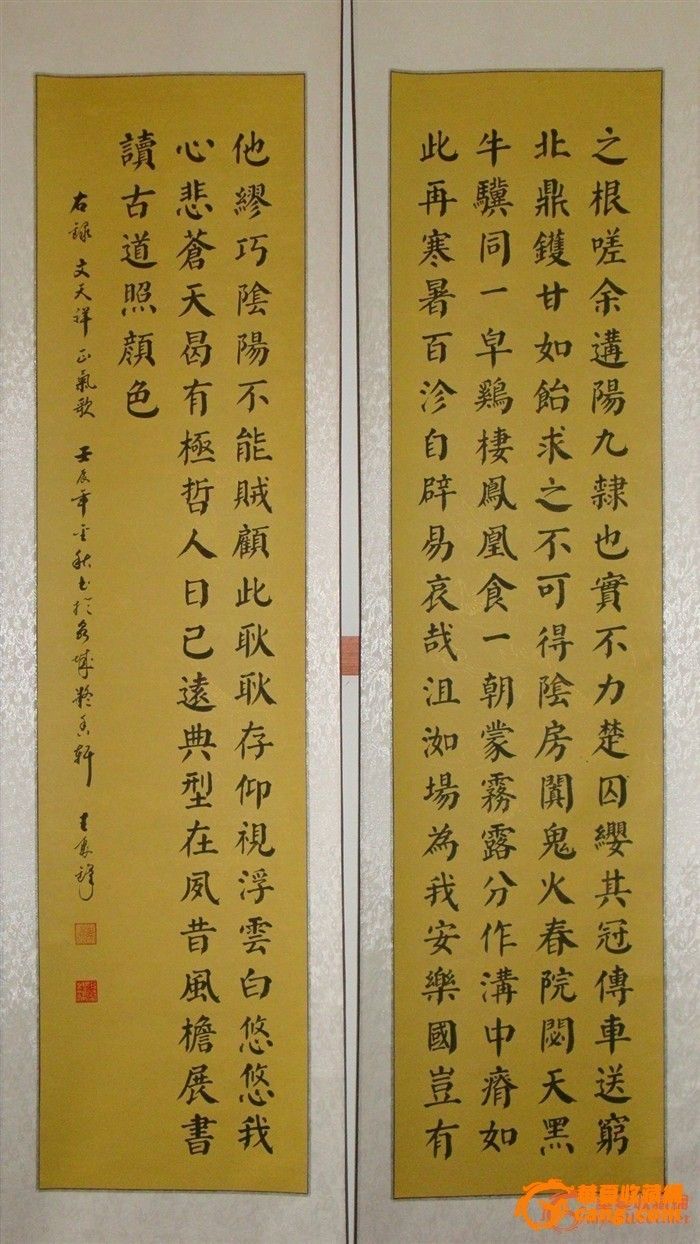 之根嗟余遘陽九隸也實不力楚囚纓其冠傳車送窮
北鼎鑊甘如飴求之不可得陰房闃鬼火春院閟天黑
牛驥同一皁鷄棲鳳凰食一朝蒙霧露分作溝中瘠如
此再寒暑百沴自辟易哀哉沮洳場為我安樂國豈有
他繆巧陰陽不能賊顧此耿耿存仰視浮雲白悠悠我
心悲蒼天曷有極哲人日已遠典型在夙昔風檐展書
讀古道照顏色
右錄文天祥正氣歌壬辰年金秋書於
華夏收藏網